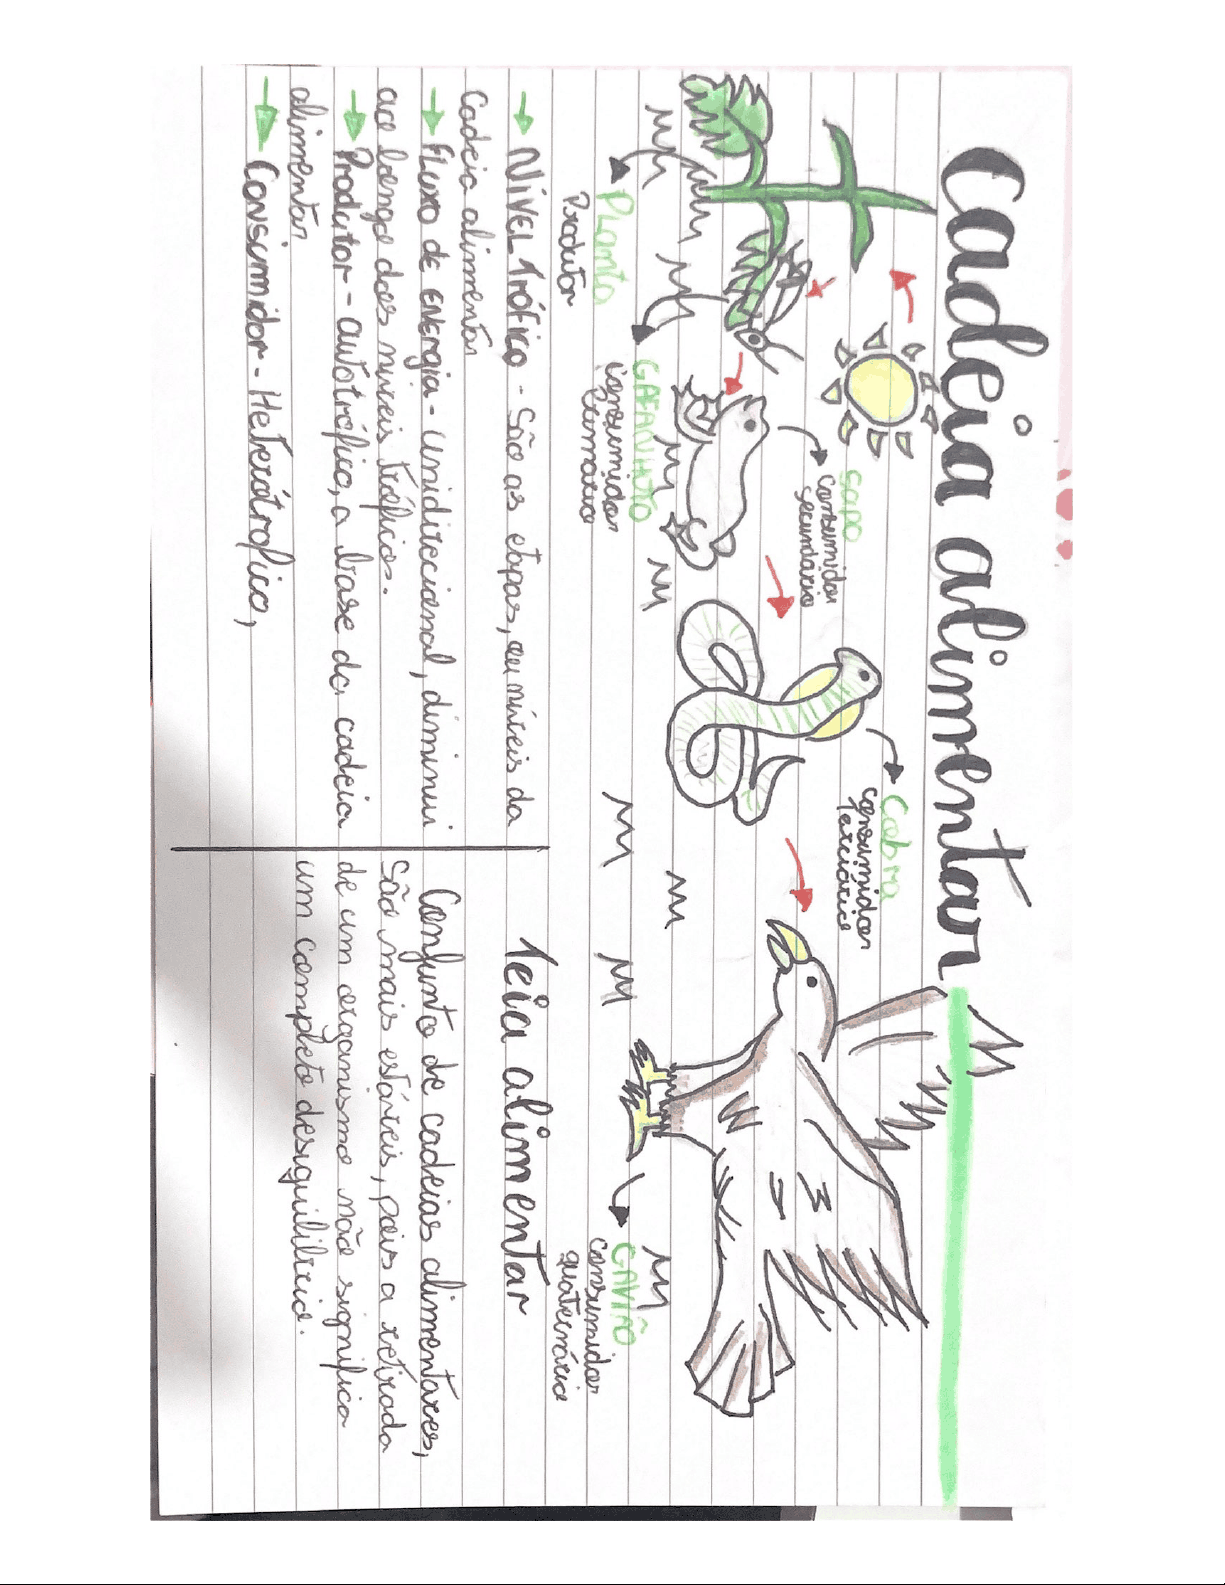 Cadeia alimentar
Sapo
Consumidor
secundário
Cobra
Consumidor
terciário
Planta
Produtor
GAFANHOTO
Consumidor
primário
GAVIÃO
Consumidor
quaternário
→ NÍVEL TRÓFICO - São as etapas, ou níveis da
Cadeia alimentar
→ FLUXO DE ENERGIA - Unidirecional, diminui
ao longo dos níveis tróficos.
→ Produtor - autotrófico, a base da cadeia
alimentar
→ Consumidor - Heterótrofico,
Teia alimentar
Conjunto de cadeias alimentares,
São mais estáveis, pois a retirada
de um organismo não significa
um completo desiquilibrio.